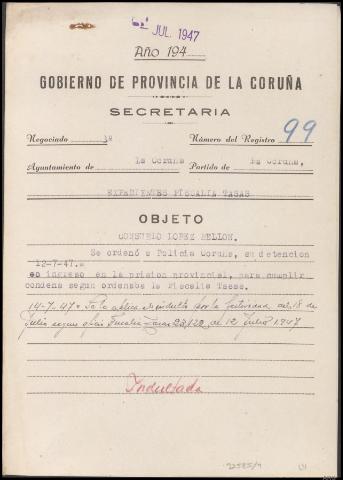 JUL. 1947
AÑO 194
GOBIERNO DE PROVINCIA DE LA CORUÑA
SECRETARIA
Negociado 1º Número del Registro 99
Ayuntamiento de La Coruña Partido de La Coruña,
EXPEDIENTES FISCALIA TASAS
OBJETO
CONSUELO LOPEZ MELLON.
Se ordenó a Policia Coruña, su detencion
12-7-47.=
en ingreso en la prision provincial, para cumplir
condena segun ordenaba la Fiscalia Tasas.
14-7-47 = indulto por la festividad del 18 de
Julio segun oficio Fiscalia Tasas 23.128, de 12 Julio 1947
Indultada